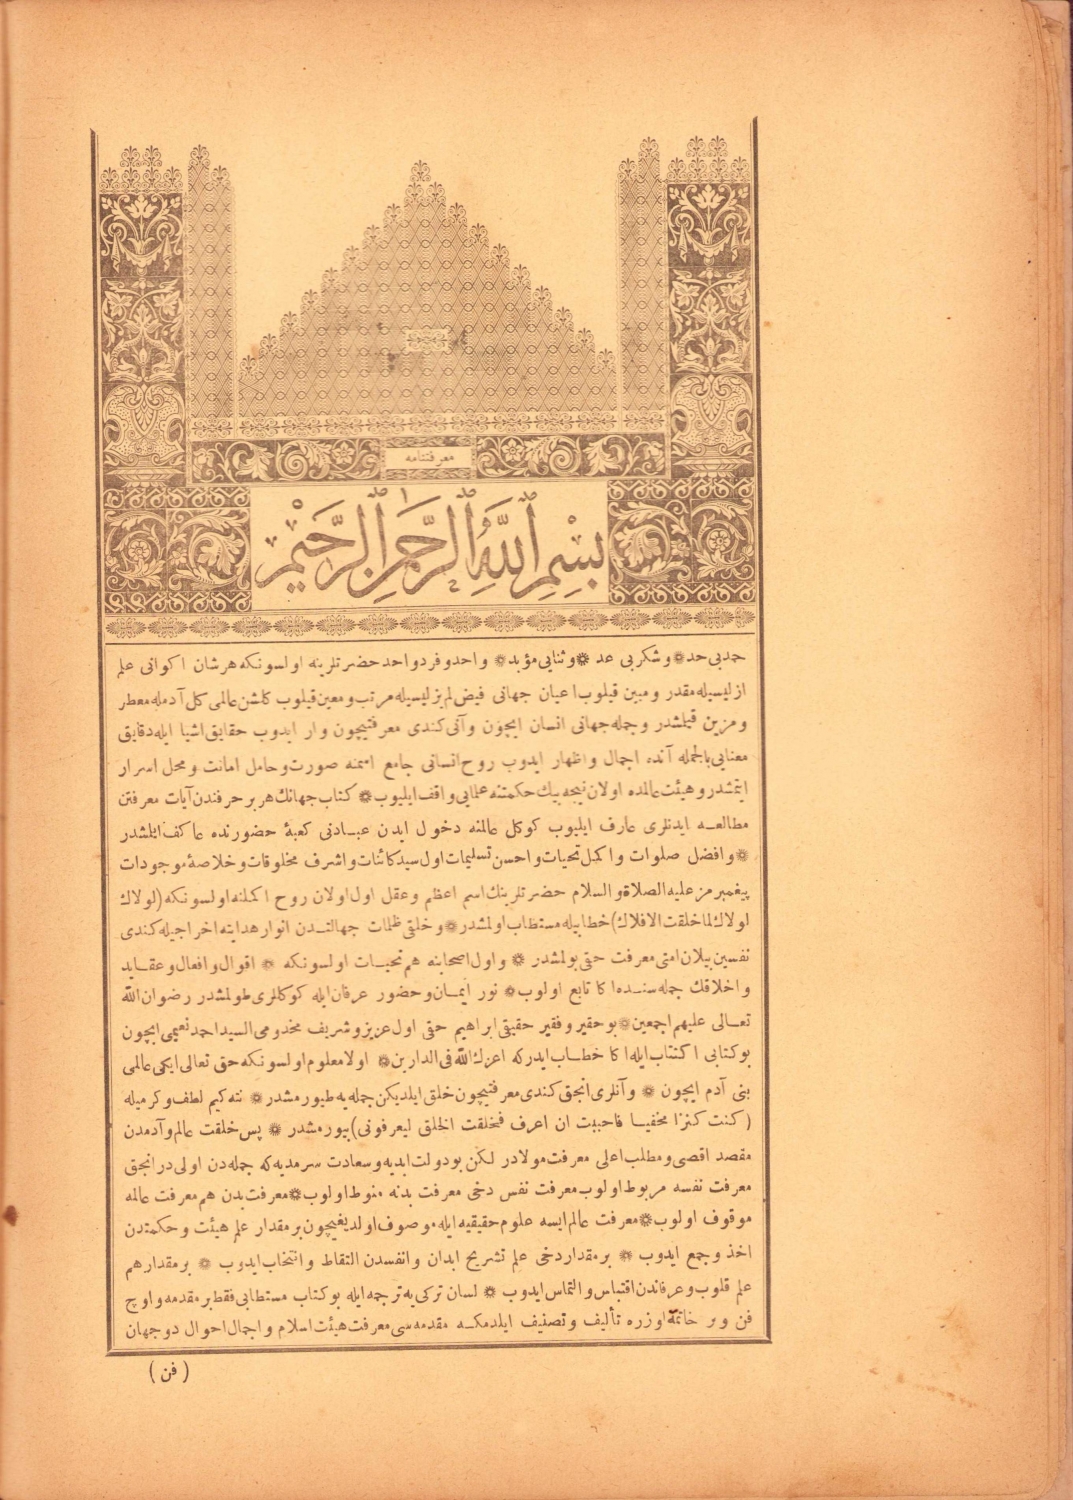 معرفتنامه
بسم الله الرحمن الرحيم
حمد بی حد ❋ و شکر بی عد ❋ و ثنای مؤبد ❋ واحد و فرد و احد حضرتلرینه اولسونکه هر شان اکوانی علم
ازلیسیله مقدر ومبین قیلوب اعیان جهانی فیض لم یزلیسیله مرتب ومعین قیلوب کلشن عالمی کل آدمله معطر
ومزین قیلمشدر وجمله جهانی انسان ایچون وآنی کندی معرفتیچون وار ایدوب حقایق اشیا ایله دقایق
معنایی بالجمله آنده اجمال واظهار ایدوب روح انسانی جامع صورت وحامل امانت ومحل اسرار
ایتمشدر وهیئت عالمده اولان نیجه بیك حکمتنه عقلایی واقف ایلیوب ❋ کتاب جهانك هر بر حرفندن آیات معرفتن
مطالعه ایدنلری عارف ایلیوب کوکل عالمنه دخول ایدن عبادنی کعبۀ حضورنده عاکف ایلمشدر
❋ وافضل صلوات واکمل تحیات واحسن تسلیمات اول سید کائنات واشرف مخلوقات وخلاصۀ موجودات
پیغمبرمز علیه الصلاة والسلام حضرتلرینك اسم اعظم وعقل اول اولان روح اکملنه اولسونکه (لولاك
لولاك لما خلقت الافلاك) خطابیله مستطاب اولمشدر ❋ وخلقی ظلمات جهالتدن انوار هدایته اخراجیله کندی
نفسین بیلان امتی معرفت حقی بولمشدر ❋ واول اصحابنه هم تحیات اولسونکه ❋ اقوال وافعال وعقاید
واخلاقك جمله سنده اکا تابع اولوب ❋ نور ایمان وحضور عرفان ایله کوکللری طولمشدر رضوان الله
تعالی علیهم اجمعین ❋ بو حقیر وفقیر حقیقی ابراهیم حقی اول عزیز وشریف مخدومی السید احمد نعیمی ایچون
بو کتابی اکتتاب ایله اکا خطاب ایدرکه اعزك الله فی الدارین ❋ اولا معلوم اولسونکه حق تعالی ایکی عالمی
بنی آدم ایچون ❋ وآنلری انجق کندی معرفتیچون خلق ایلدیکن جمله یه طیورمشدر ❋ نته کیم لطف وکرمیله
(کنت کنزا مخفیا فاحببت ان اعرف فخلقت الخلق لیعرفونی) بیورمشدر ❋ پس خلقت عالم وآدمدن
مقصد اقصی ومطلب اعلی معرفت مولادر لکن بو دولت ابدیه وسعادت سرمدیه که جمله دن اولی در انجق
معرفت نفسه مربوط اولوب معرفت نفس دخی معرفت بدنه منوط اولوب ❋ معرفت بدن هم معرفت عالمه
موقوف اولوب ❋ معرفت عالم ایسه علوم حقیقیه ایله موصوف اولدیغیچون بر مقدار علم هیئت وحکمتدن
اخذ وجمع ایدوب ❋ بر مقدار دخی علم تشریح ابدان وانفسدن التقاط وانتخاب ایدوب ❋ بر مقدار هم
علم قلوب وعرفاندن اقتباس والتماس ایدوب ❋ لسان ترکی یه ترجمه ایله بو کتاب مستطابی فقط بر مقدمه واوچ
فن وبر خاتمه اوزره تألیف وتصنیف ایلدمکه مقدمه سی معرفت هیئت اسلام واجمال احوال دو جهان
(فن)